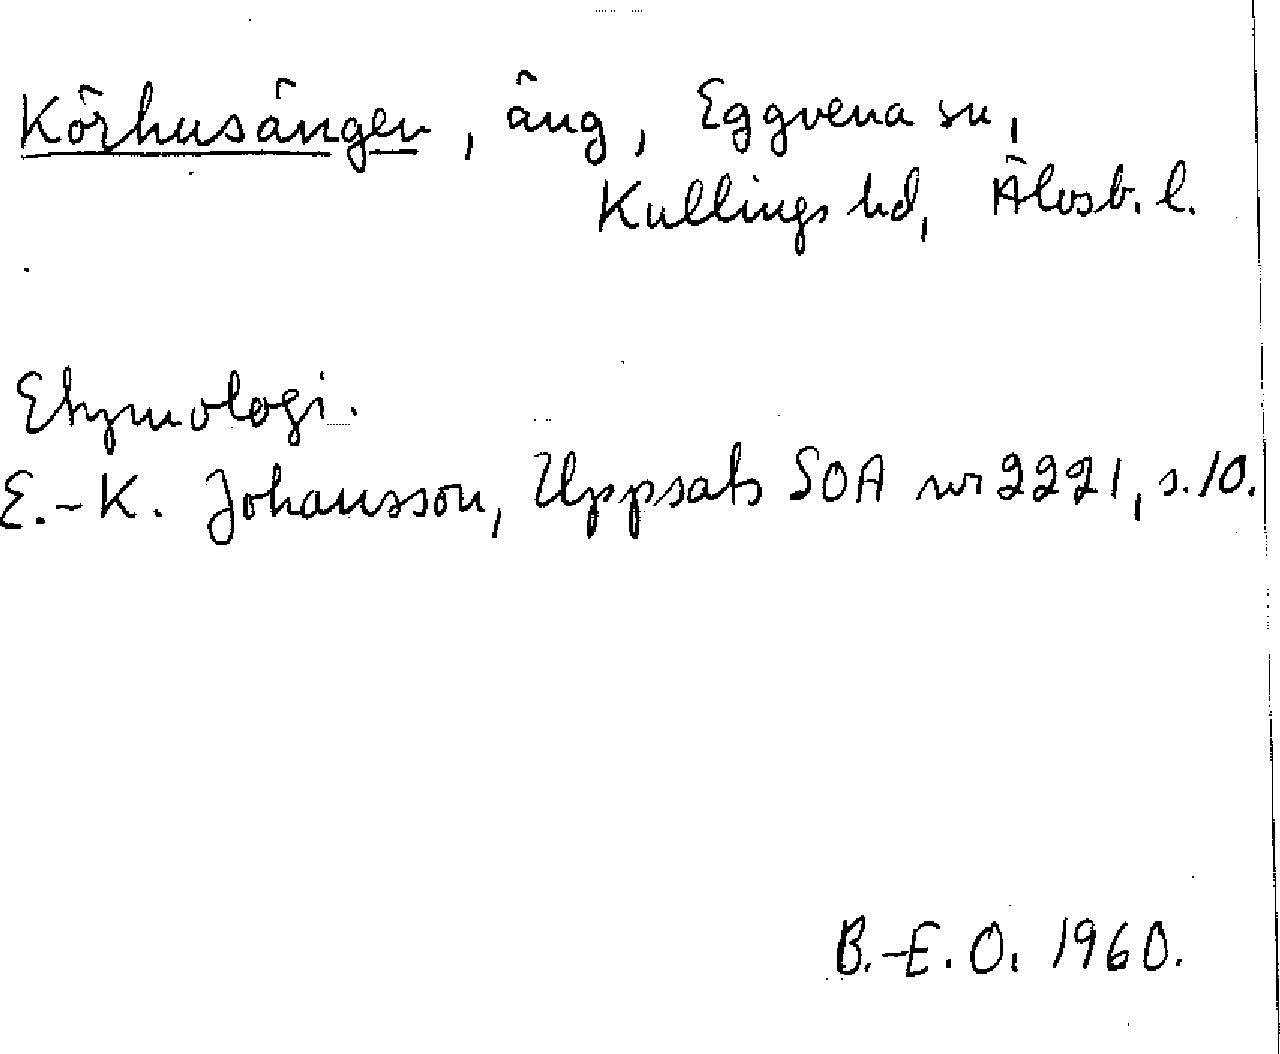 Körhusängen, äng, Eggvena sn,
Kullings hd, Älvsb. l.
Etymologi.
E.-K. Johansson, Uppsats SOA nr 2221, s. 10.
B.-E. O. 1960.